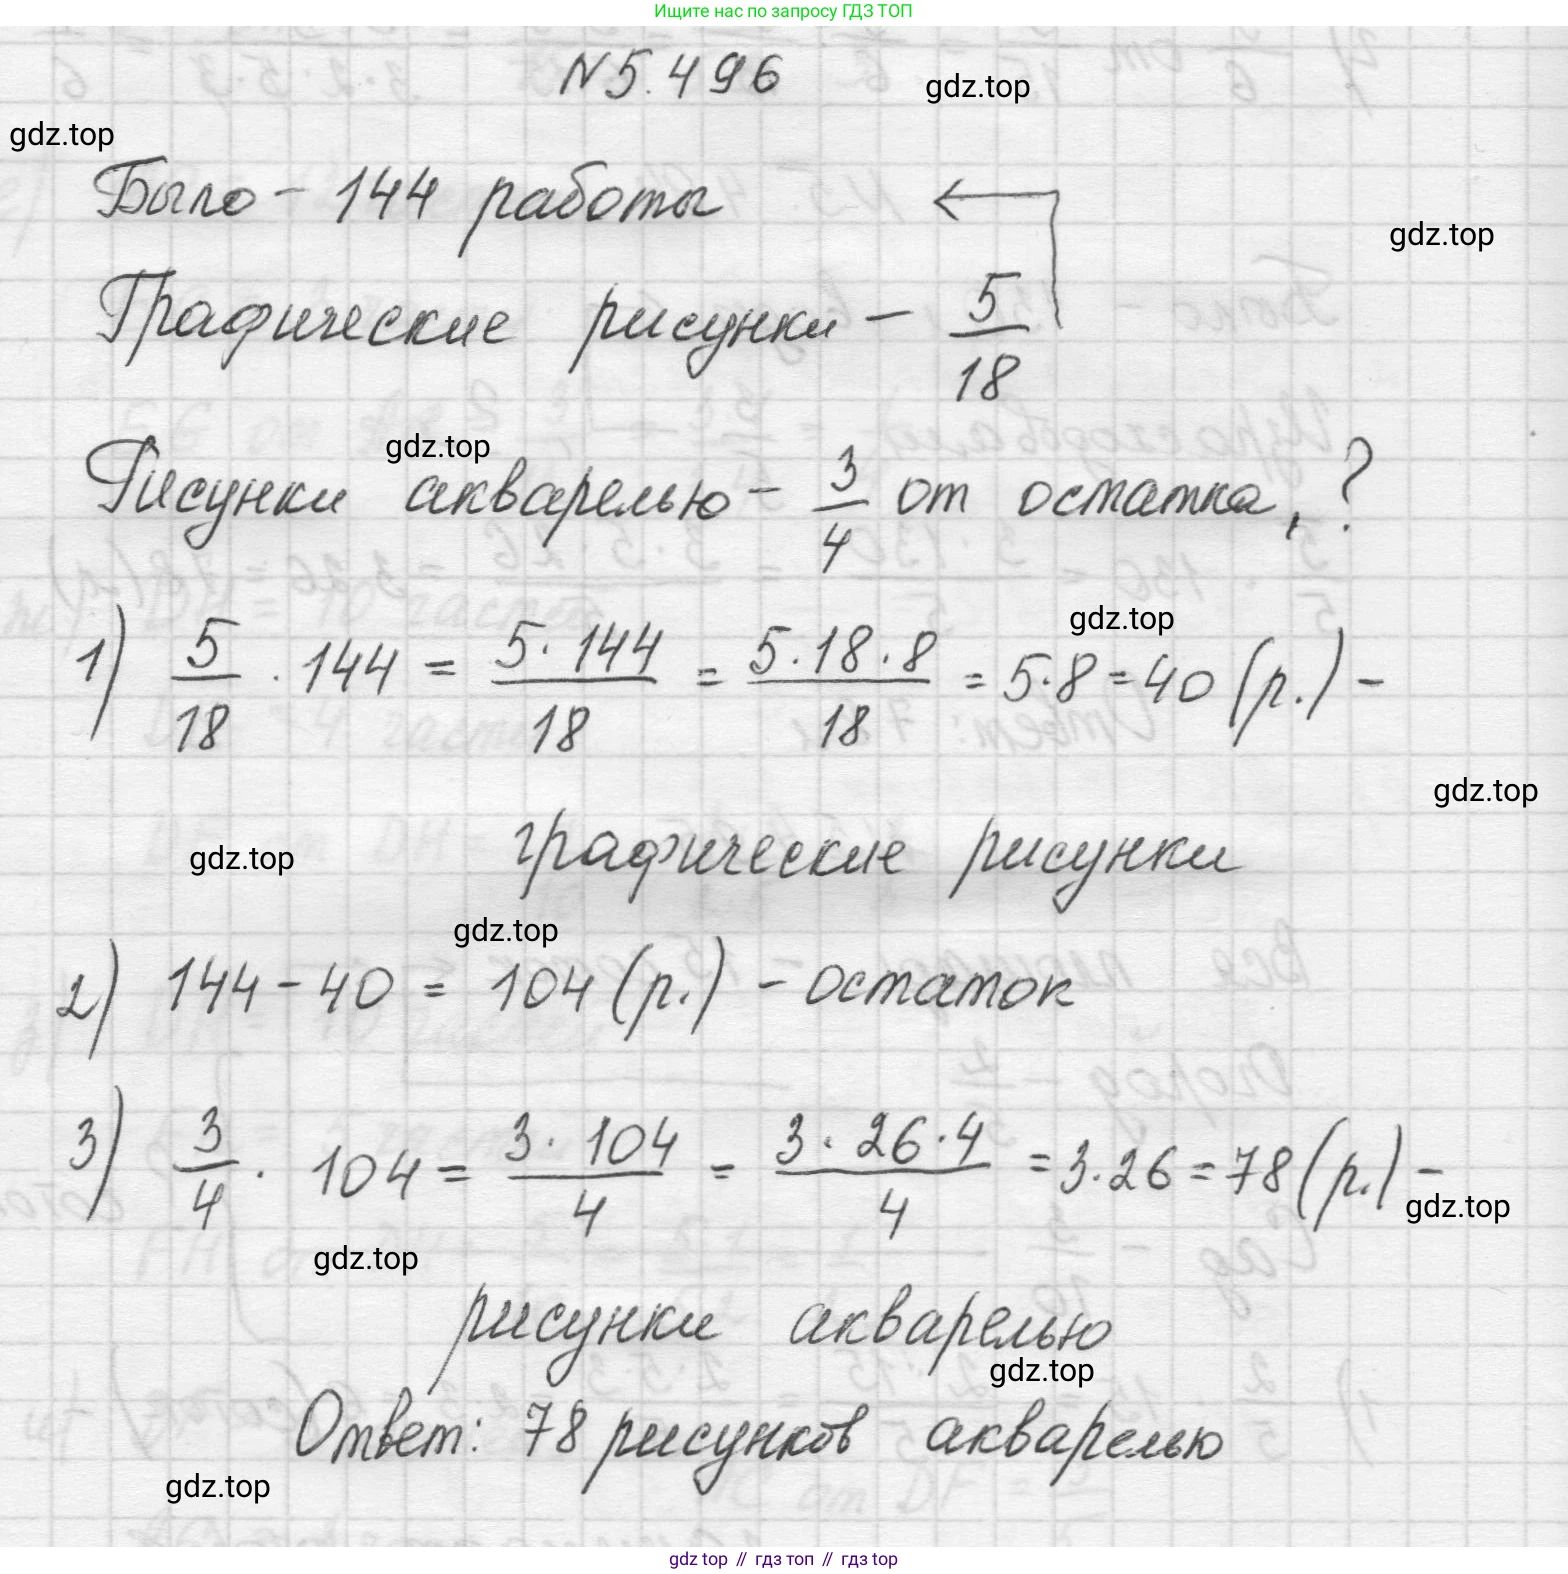 Ищите нас по запросу ГДЗ ТОП
N5.496
gdz.top
gdz.top
Было - 144 работы
gdz.top
Графические рисунки - 5/18
gdz.top
Рисунки акварелью - 3/4 от остатка, ?
gdz.top
1) 5/18 · 144 = 5·144/18 = 5·18·8/18 = 5·8 = 40 (р.) -
gdz.top
графические рисунки
gdz.top
gdz.top
2) 144 - 40 = 104 (р.) - остаток
3) 3/4 · 104 = 3·104/4 = 3·26·4/4 = 3·26 = 78 (р.) -
gdz.top
gdz.top
рисунки акварелью
gdz.top
Ответ: 78 рисунков акварелью
gdz.top
gdz top // гдз топ // гдз top